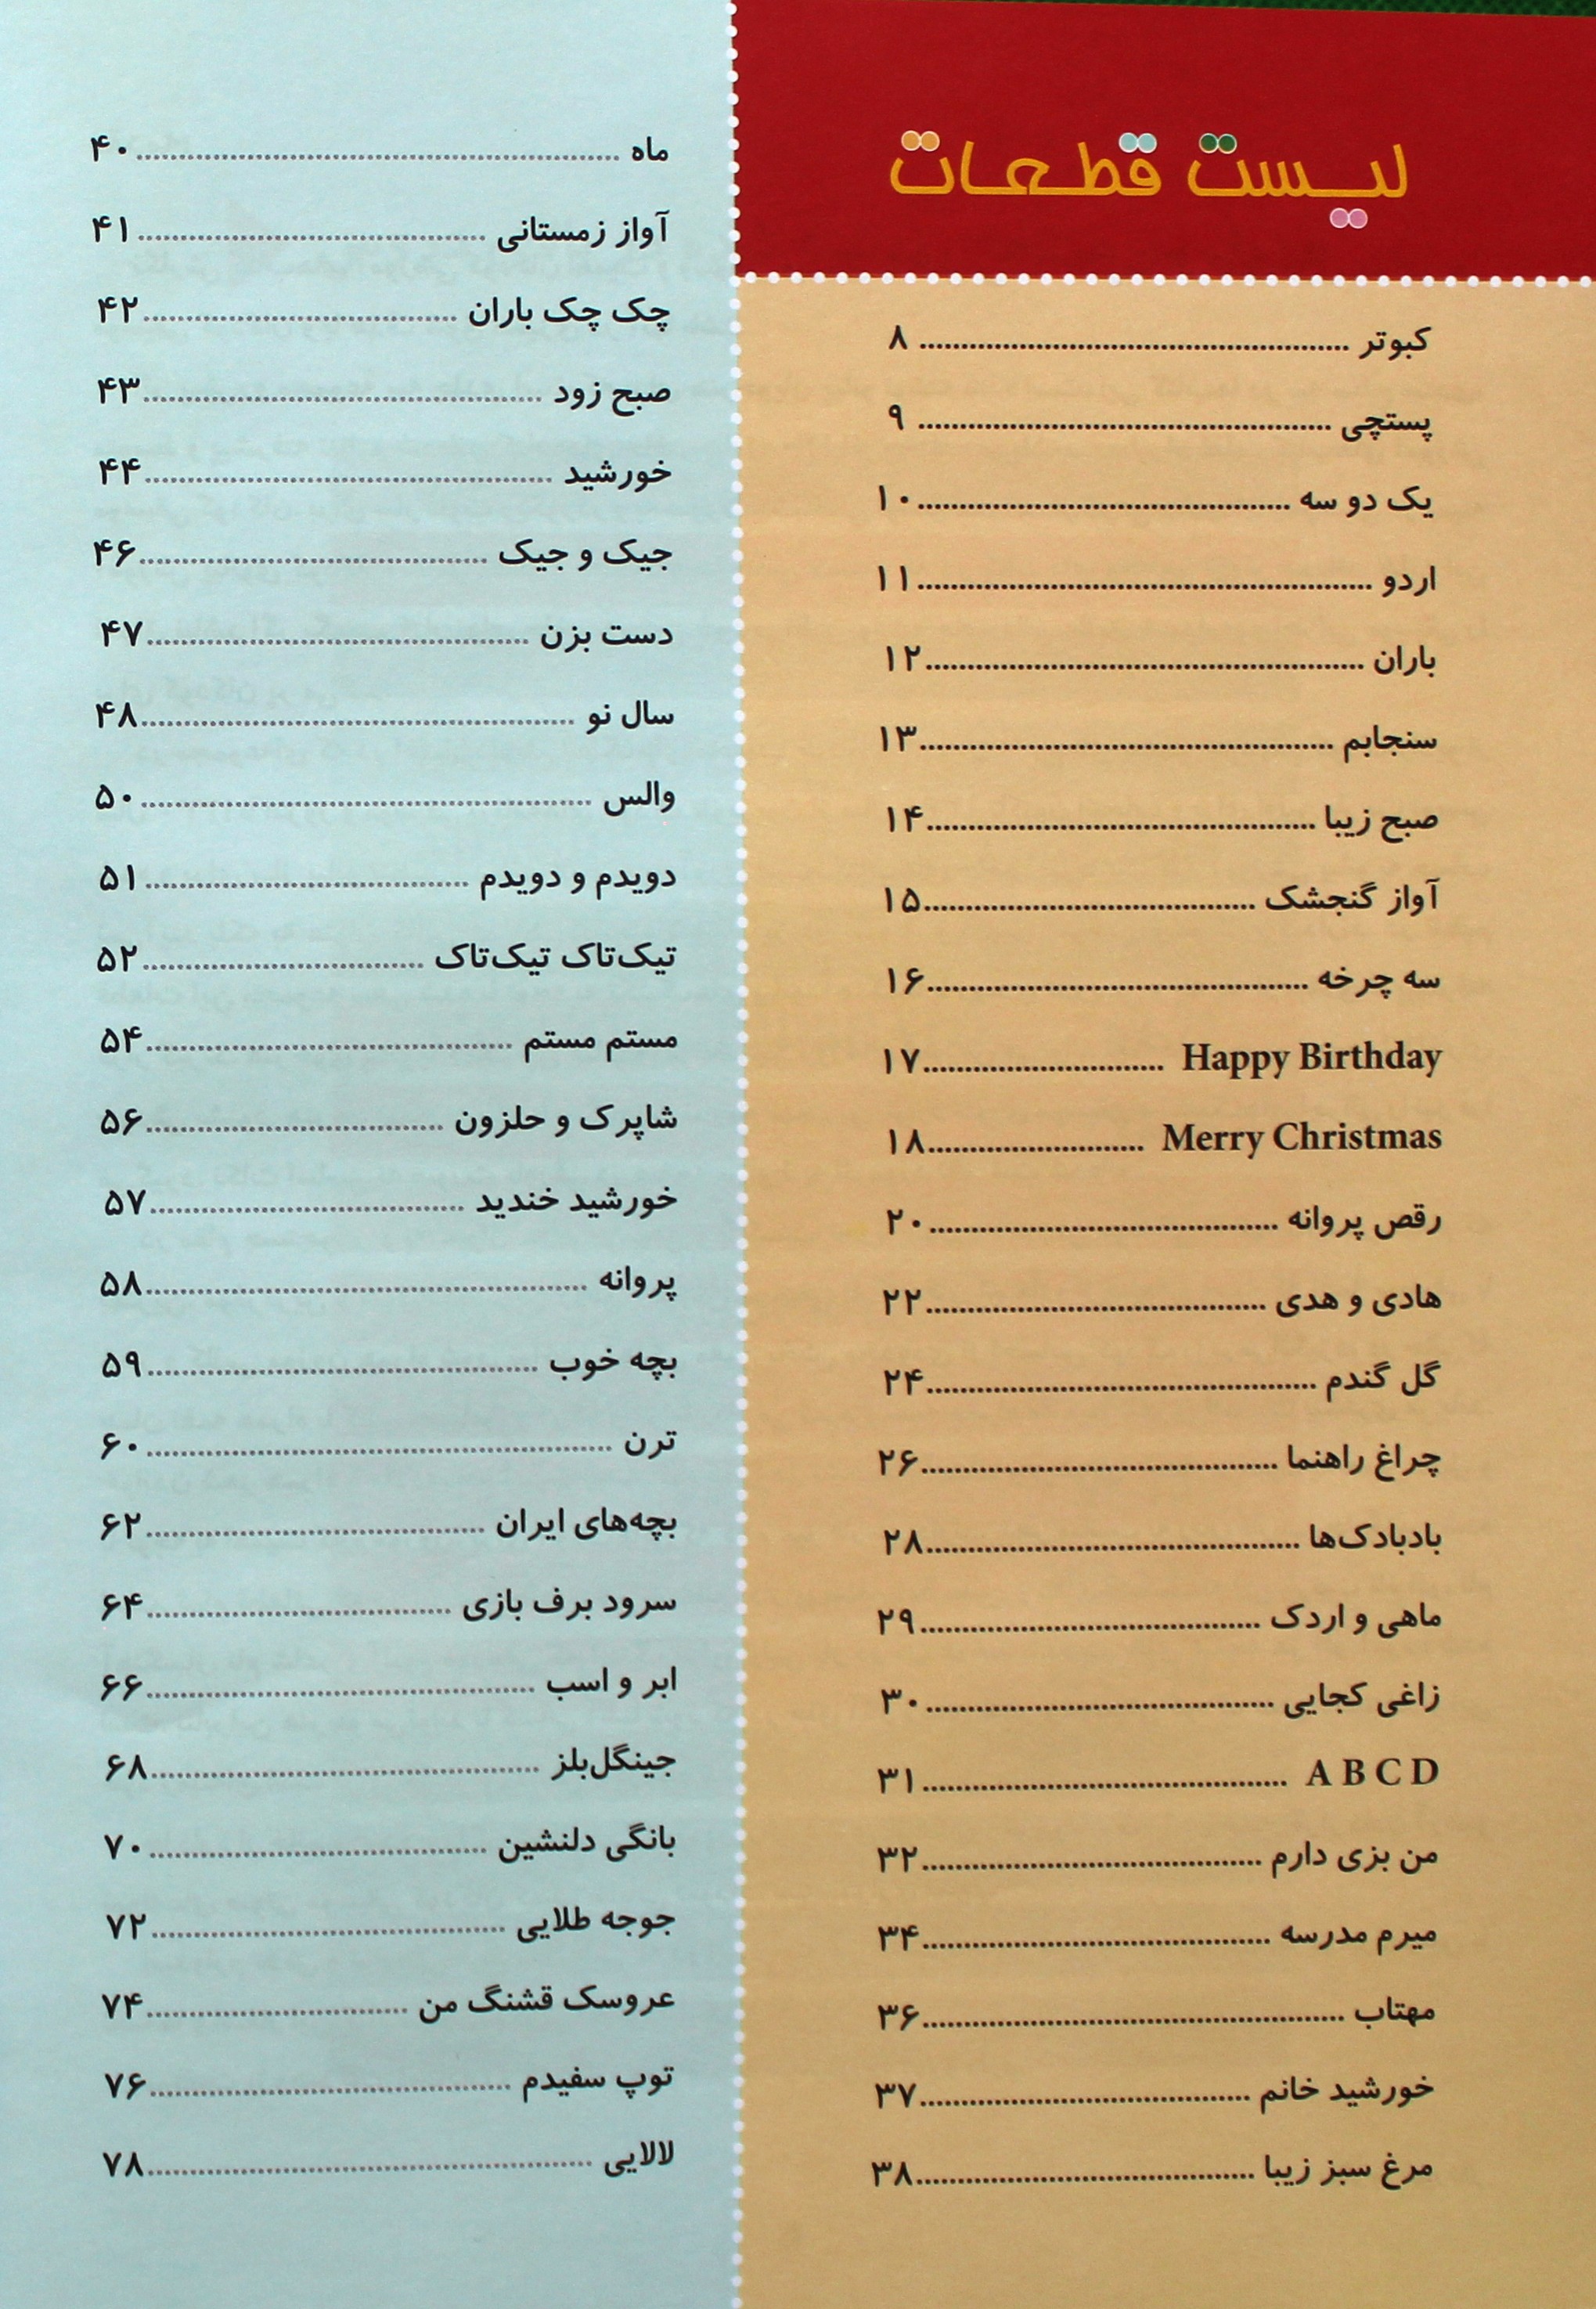 لیست قطعات
کبوتر ........ ۸
پستچی ........ ۹
یک دو سه ........ ۱۰
اردو ........ ۱۱
باران ........ ۱۲
سنجابم ........ ۱۳
صبح زیبا ........ ۱۴
آواز گنجشک ........ ۱۵
سه چرخه ........ ۱۶
Happy Birthday ........ ۱۷
Merry Christmas ........ ۱۸
رقص پروانه ........ ۲۰
هادی و هدی ........ ۲۲
گل گندم ........ ۲۴
چراغ راهنما ........ ۲۶
بادبادک‌ها ........ ۲۸
ماهی و اردک ........ ۲۹
زاغی کجایی ........ ۳۰
A B C D ........ ۳۱
من بزی دارم ........ ۳۲
میرم مدرسه ........ ۳۴
مهتاب ........ ۳۶
خورشید خانم ........ ۳۷
مرغ سبز زیبا ........ ۳۸
ماه ........ ۴۰
آواز زمستانی ........ ۴۱
چک چک باران ........ ۴۲
صبح زود ........ ۴۳
خورشید ........ ۴۴
جیک و جیک ........ ۴۶
دست بزن ........ ۴۷
سال نو ........ ۴۸
والس ........ ۵۰
دویدم و دویدم ........ ۵۱
تیک‌تاک تیک‌تاک ........ ۵۲
مستم مستم ........ ۵۴
شاپرک و حلزون ........ ۵۶
خورشید خندید ........ ۵۷
پروانه ........ ۵۸
بچه خوب ........ ۵۹
ترن ........ ۶۰
بچه‌های ایران ........ ۶۲
سرود برف بازی ........ ۶۴
ابر و اسب ........ ۶۶
جینگل‌بلز ........ ۶۸
بانگی دلنشین ........ ۷۰
جوجه طلایی ........ ۷۲
عروسک قشنگ من ........ ۷۴
توپ سفیدم ........ ۷۶
لالایی ........ ۷۸